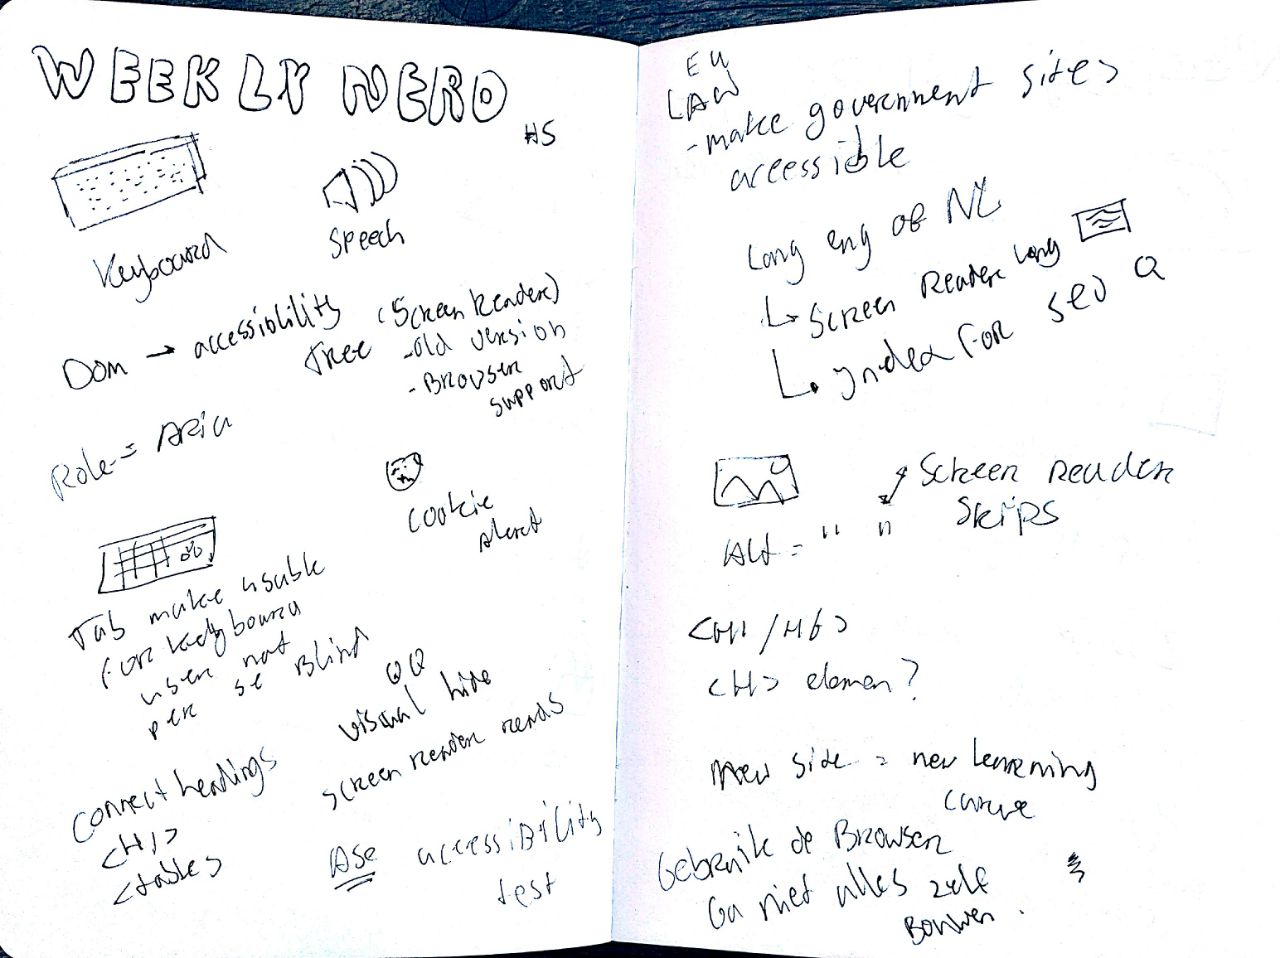 WEEKLY NERD
#5
Keyboard
Speech
Dom → accessiblility
Tree
(Screen Reader)
-old version
-Browser
support
Role = Aria
Cookie
Alert
Tab make usable
for keyboard
user not
per se Blind
visual hide
screen reader reads
Connect headings
<H1>
<tables
use accessibility
test
EU
LAW
-make government sites
accessible
Lang eng of NL
↳ Screen Reader Lang
↳ index for SEO
Alt = " "
Screen reader
Skips
<H1/H6>
<H> elemen?
New side = new learning
curve
Gebruik de Browser
Ga niet alles zelf
Bouwen.